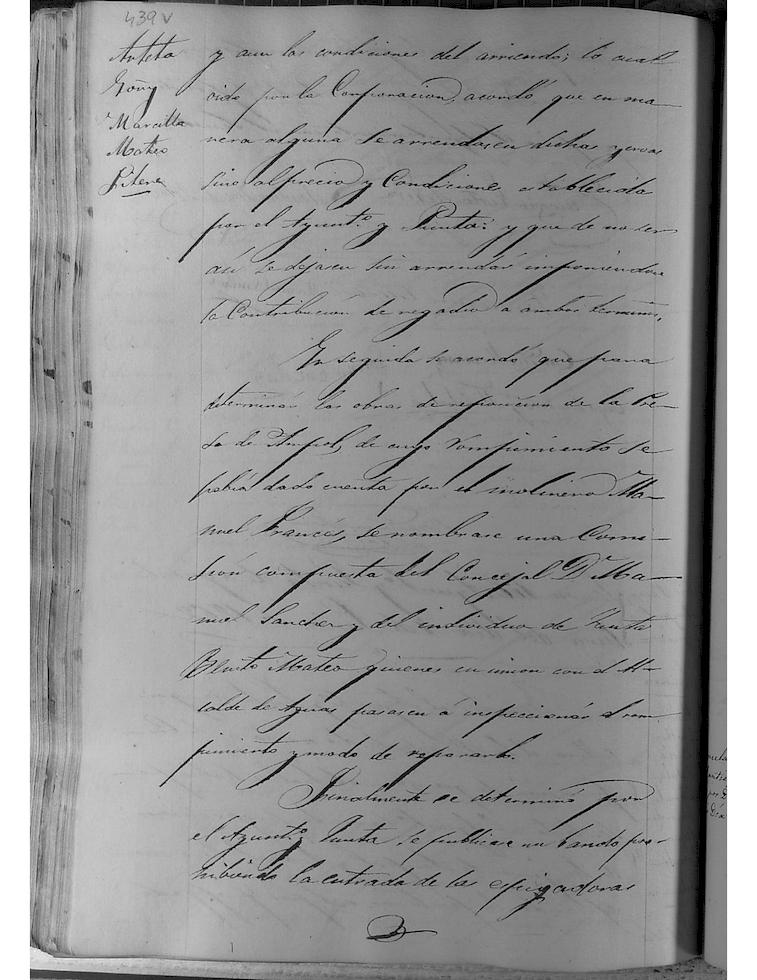 439 v
Arteta
Goñy
Marcilla
Mateo
Pitere
y aun las condiciones del arriendo; lo cual
oido por la Corporacion, acordó que en ma-
nera alguna se arrendasen dichas yervas
sino al precio y Condiciones establecido
por el Ayunt.º y Junta: y que de no ser
asi se dejasen sin arrendar imponiendose
la Contribucion de regadio a ambos terminos.
En seguida se acordó que para
determinar las obras de reparacion de la Pre-
sa de Ampol, de cuyo rompimiento se
habia dado cuenta por el molinero Ma-
nuel Francés, se nombrase una Comi-
sion compuesta del Concejal Dn Ma-
nuel Sanchez y del individuo de Junta
Benito Mateo quienes en union con el Al-
calde de Aguas pasasen á inspeccionar el rom-
pimiento y modo de repararlo.
Finalmente se determinó por
el Ayunt.º y Junta se publicase un bando pro-
hibiendo la entrada de las espigadoras